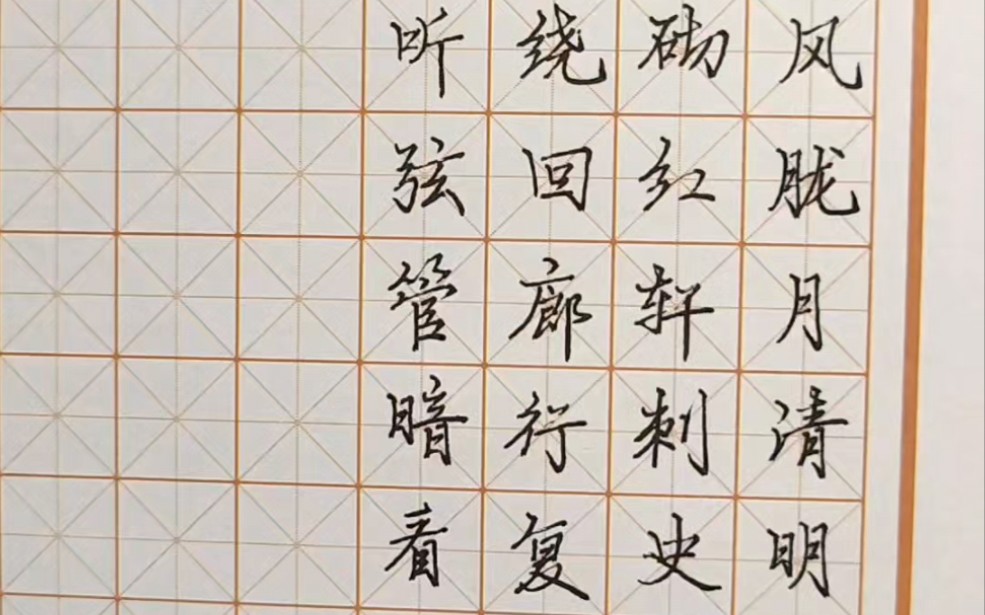 风胧月清明
砌红轩刺史
绕回廊行复
听弦管暗看